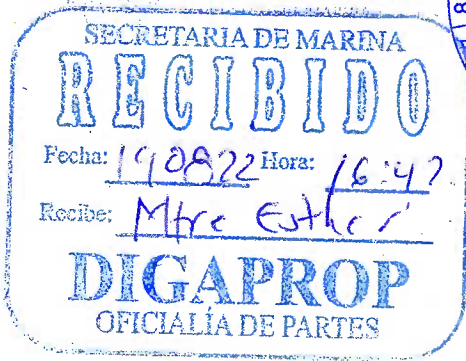 SECRETARIA DE MARINA
RECIBIDO
Fecha: 190822 Hora: 16:47
Recibe: Mtre Esther
DIGAPROP
OFICIALÍA DE PARTES
8